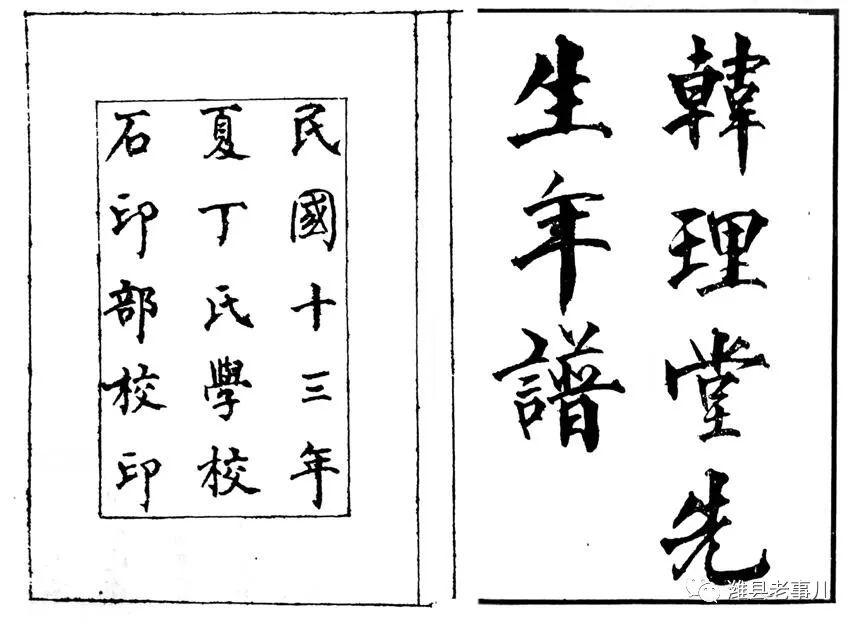 韓理堂先
生年譜
民國十三年
夏丁氏學校
石印部校印
潍县老事儿